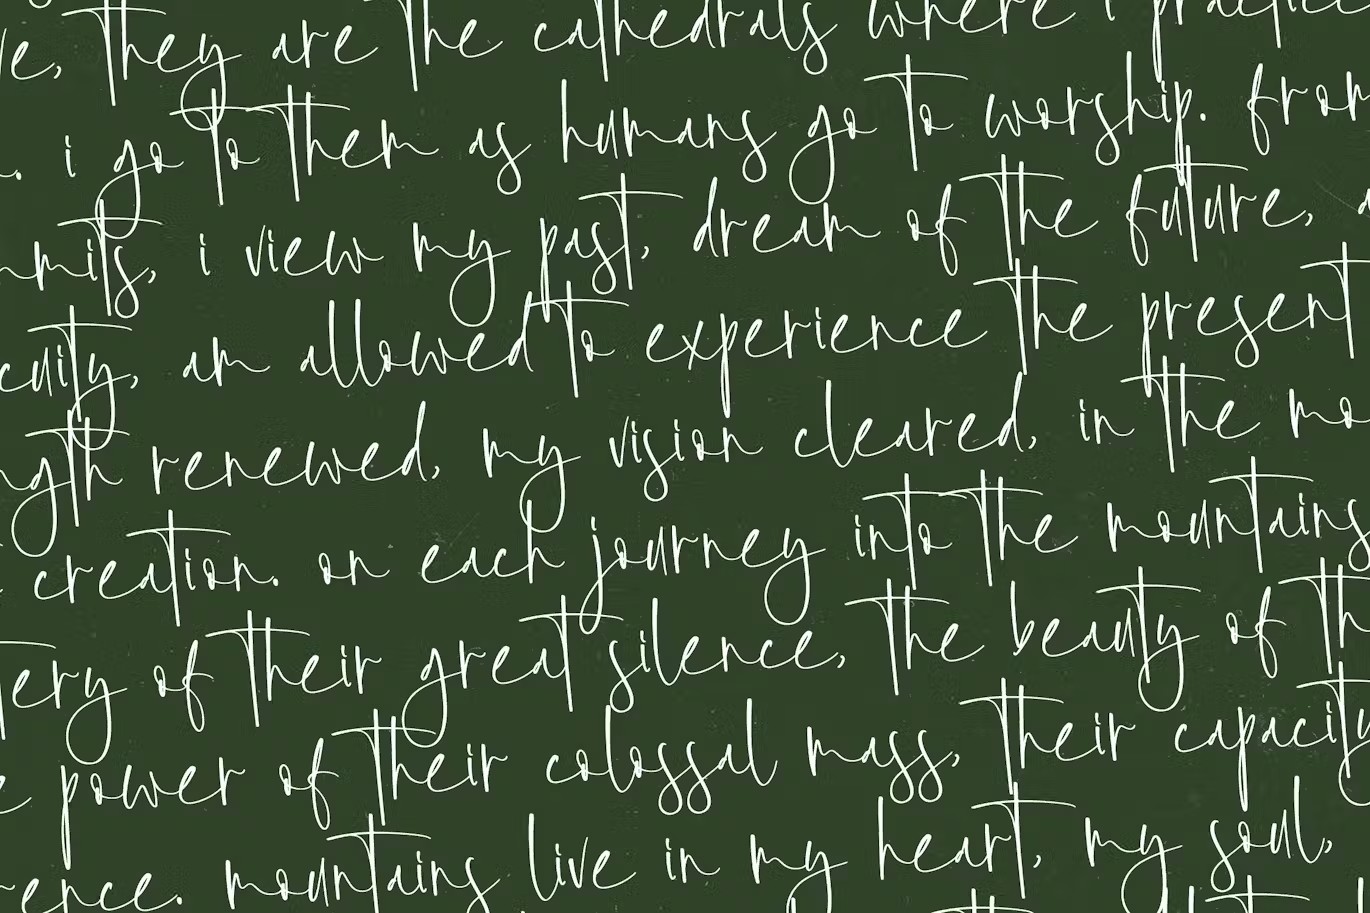 ve, they are the cathedrals where i practice
. i go to them as humans go to worship. from
mmits, i view my past, dream of the future,
cuity, am allowed to experience the present
ngth renewed, my vision cleared, in the mo
creation. on each journey into the mountains
tery of their great silence, the beauty of th
e power of their colossal mass, their capacity
ence. mountains live in my heart, my soul,